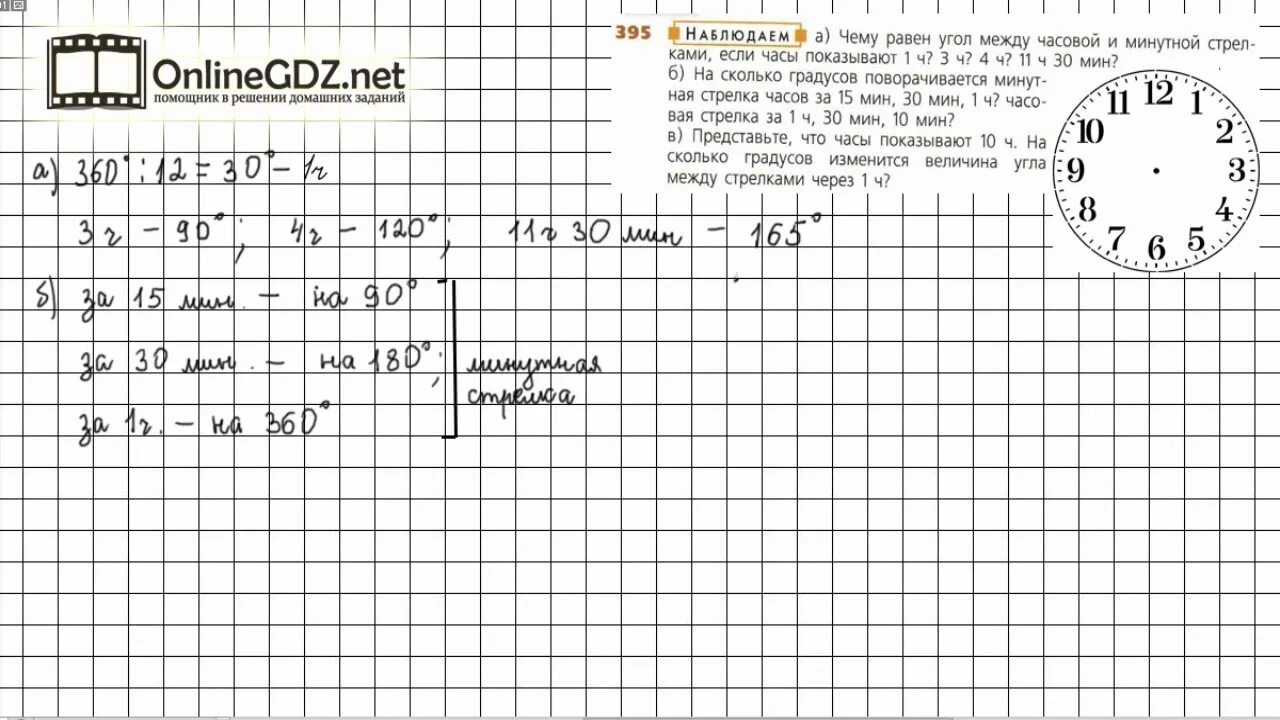 OnlineGDZ.net
помощник в решении домашних заданий
395 Наблюдаем а) Чему равен угол между часовой и минутной стрел-
ками, если часы показывают 1 ч? 3 ч? 4 ч? 11 ч 30 мин?
б) На сколько градусов поворачивается минут-
ная стрелка часов за 15 мин, 30 мин, 1 ч? часо-
вая стрелка за 1 ч, 30 мин, 10 мин?
в) Представьте, что часы показывают 10 ч. На
сколько градусов изменится величина угла
между стрелками через 1 ч?
12
11 1
10 2
9 3
8 4
7 5
6
а) 360° : 12 = 30° – 1ч
3 ч – 90°; 4ч – 120°; 11ч 30 мин – 165°
б) за 15 мин. – на 90°
за 30 мин. – на 180°;
за 1ч. – на 360°
минутная
стрелка